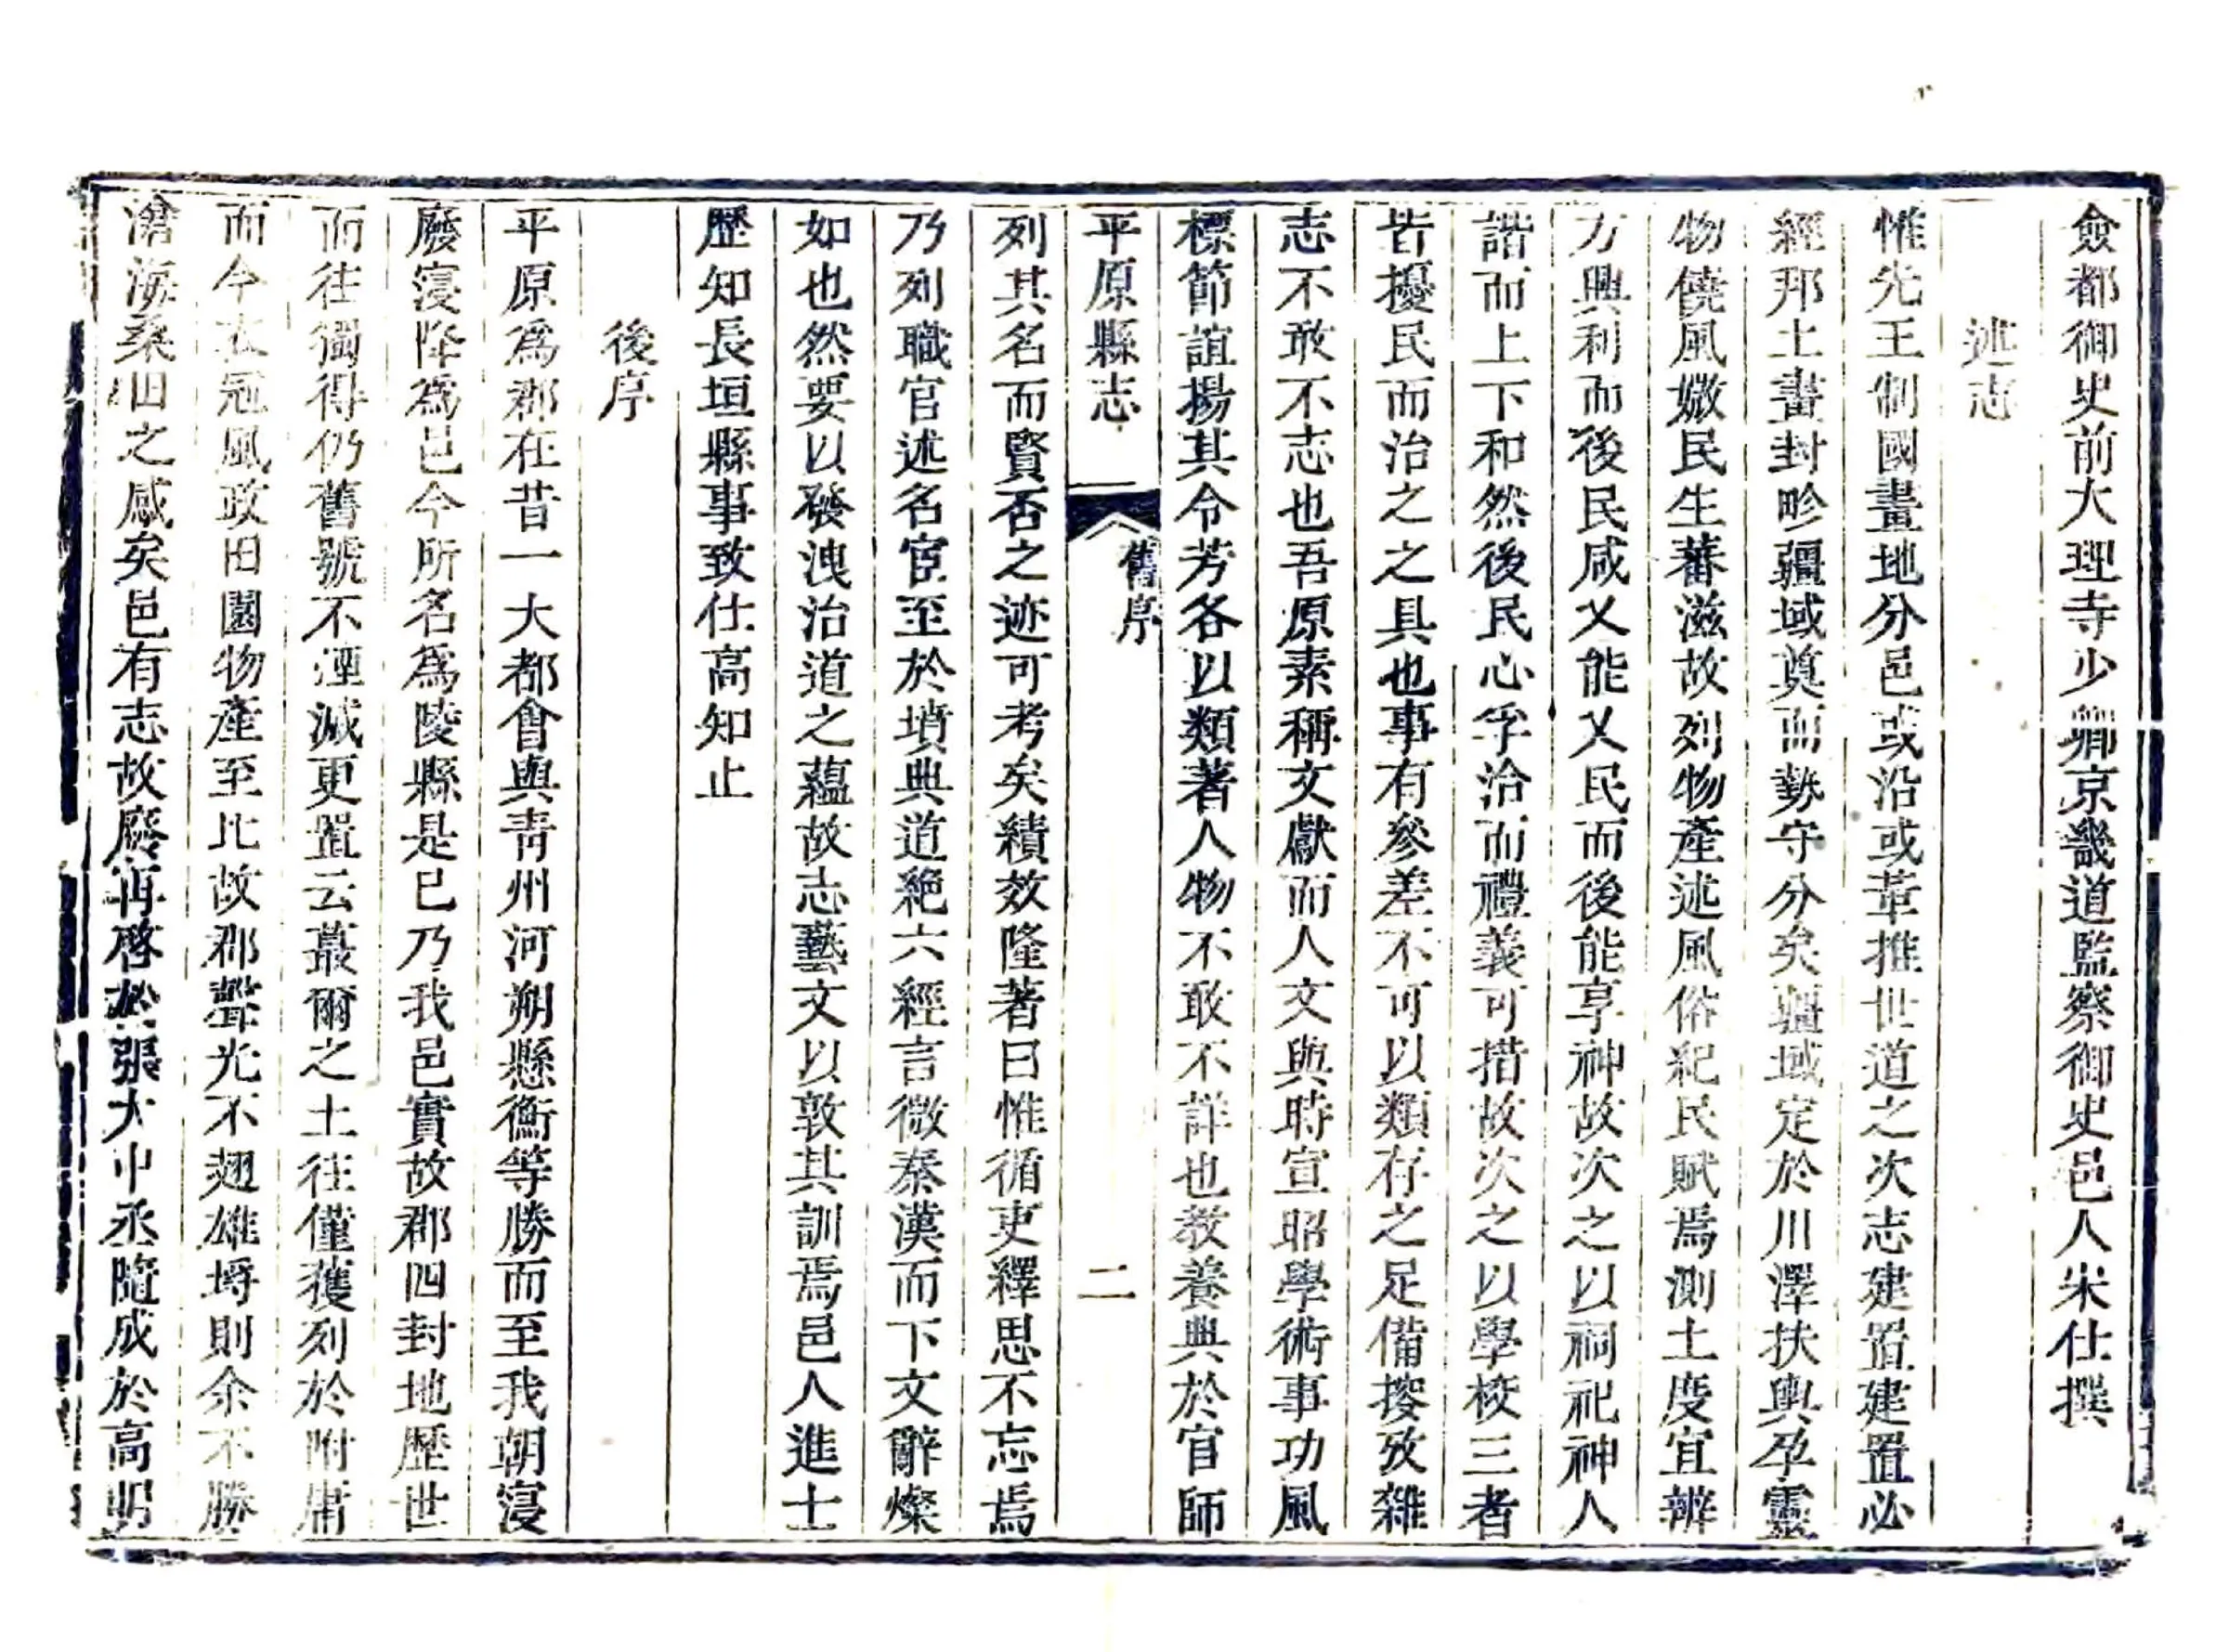 僉都御史前大理寺少卿京畿道監察御史邑人宋仕撰
述志
惟先王制國畫地分邑或沿或革推世道之次志建置建置必
經邦土畫封畛疆域奠而勢守分矣疆域定於川澤扶輿孕靈
物饒風媺民生蕃滋故列物產述風俗紀民賦焉測土度宜辨
方興利而後民咸乂能乂民而後能享神故次之以祠祀神人
諧而上下和然後民心孚洽而禮義可措故次之以學校三者
皆擾民而治之之具也事有參差不可以類存之足備按攷雜
志不敢不志也吾原素稱文獻而人文與時宣昭學術事功風
標節誼揚其令芳各以類著人物不敢不詳也教養典於官師
平原縣志
舊序
二
列其名而賢否之迹可考矣績效隆著曰惟循吏繹思不忘焉
乃列職官述名宦至於墳典道絕六經言微秦漢而下文辭燦
如也然要以發洩治道之蘊故志藝文以敦其訓焉邑人進士
歷知長垣縣事致仕高知止
後序
平原爲郡在昔一大都會與青州河朔懸衡等勝而至我朝寖
廢寖降爲邑今所名爲陵縣是已乃我邑實故郡四封地歷世
而往獨得仍舊號不湮滅更置云蕞爾之土往僅獲列於附庸
而今衣冠風政田園物產至比故郡聲光不翅雄埒則余不勝
滄海桑田之感矣邑有志故廢再啓於張大中丞隨成於高明